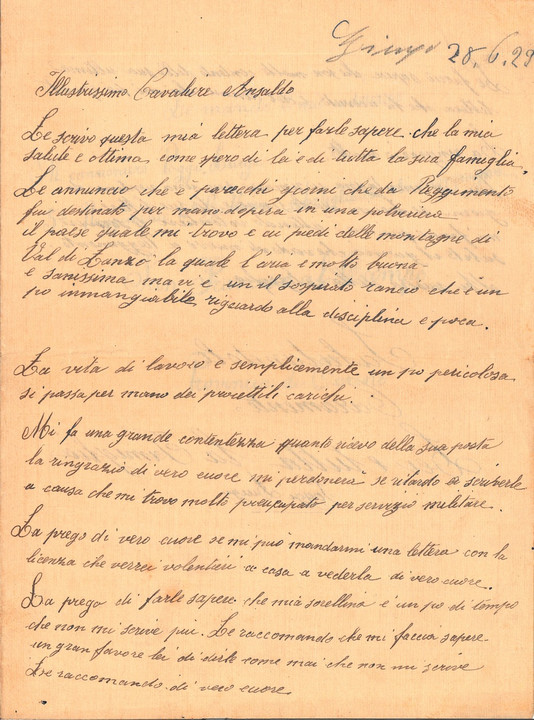 28.6.29
Illustrissimo Cavaliere Ansaldo
Le scrivo questa mia lettera per farle sapere che la mia
salute e ottima come spero di lei e di tutta la sua famiglia.
Le annuncio che e parecchi giorni che da Reggimento
fui destinato per mano dopera in una polveriera
il paese quale mi trovo e ai piedi delle montagne di
Val di Lanzo la quale l'aria e molto buona
e sanissima ma vi e un il sospirato rancio che e un
po inmangiabile riguardo alla disciplina e poca.
La vita di lavoro e semplicemente un po pericolosa
si passa per mano dei proiettili carichi.
Mi fa una grande contentezza quanto ricevo della sua posta
la ringrazio di vero cuore mi perdonera se ritardo a scriverle
a causa che mi trovo molto preucupato per servizio militare.
La prego di vero cuore se mi può mandarmi una lettera con la
licenza che verrei volentieri a casa a vederla di vero cuore.
La prego di farle sapere che mia sorellina è un po di tempo
che non mi scrive più. Le raccomando che mi faccia sapere
un gran favore lei di dirle come mai che non mi scrive
Le raccomando di vero cuore